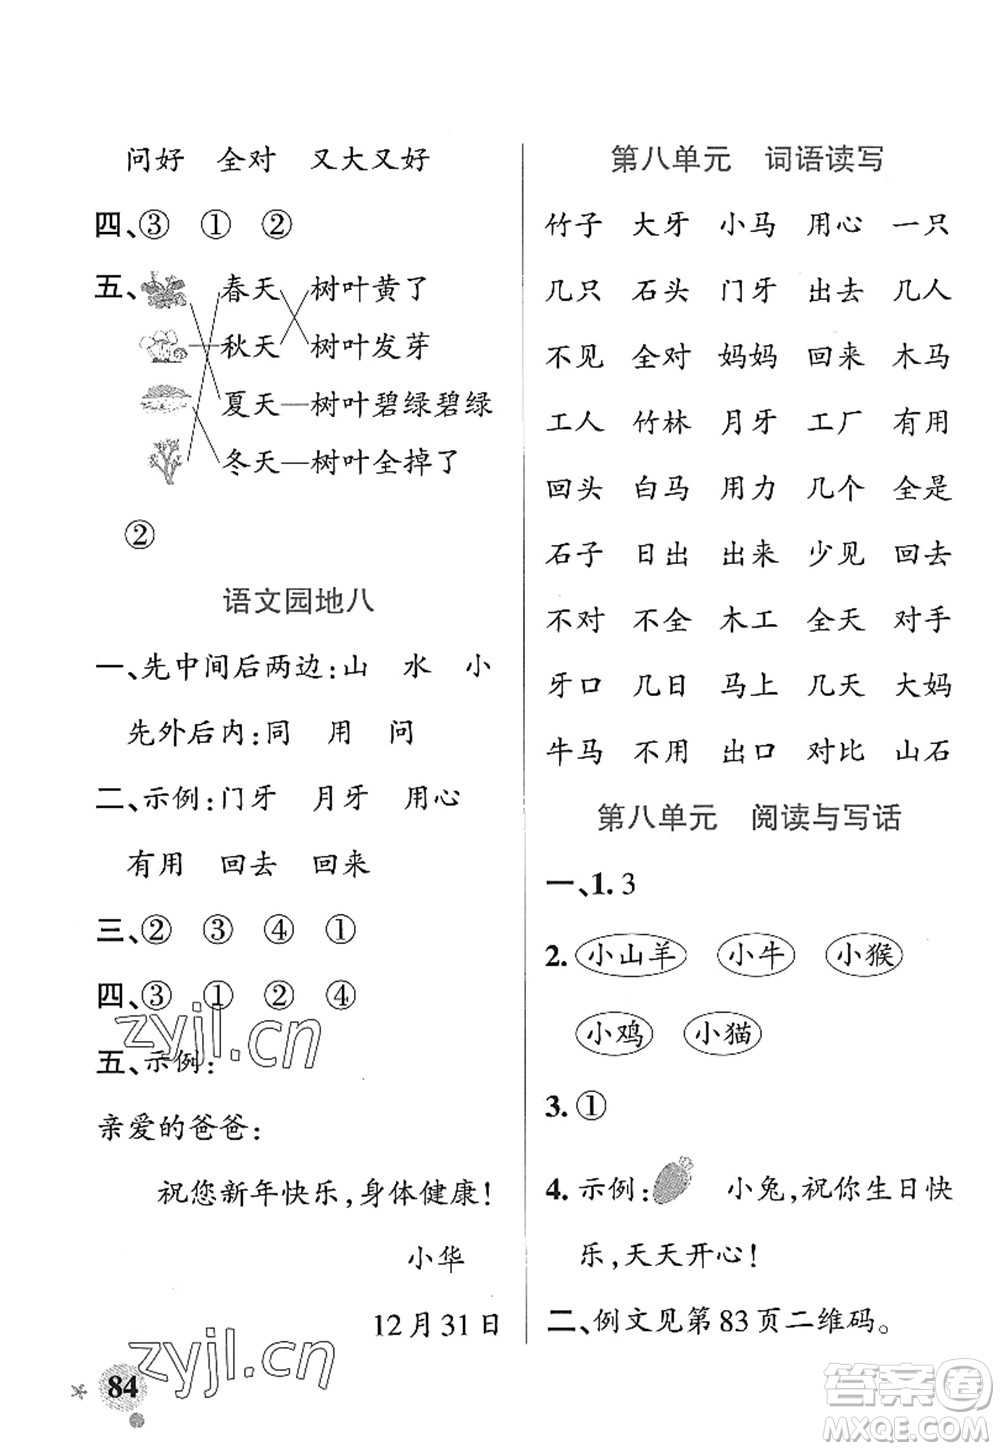 问好 全对 又大又好
四、③ ① ②
五、 春天 树叶黄了
秋天 树叶发芽
夏天—树叶碧绿碧绿
冬天—树叶全掉了
②
语文园地八
一、先中间后两边:山 水 小
先外后内:同 用 问
二、示例:门牙 月牙 用心
有用 回去 回来
三、② ③ ④ ①
四、③ ① ② ④
五、示例:
亲爱的爸爸:
祝您新年快乐,身体健康!
小华
12月31日
84
第八单元 词语读写
竹子 大牙 小马 用心 一只
几只 石头 门牙 出去 几人
不见 全对 妈妈 回来 木马
工人 竹林 月牙 工厂 有用
回头 白马 用力 几个 全是
石子 日出 出来 少见 回去
不对 不全 木工 全天 对手
牙口 几日 马上 几天 大妈
牛马 不用 出口 对比 山石
第八单元 阅读与写话
一、1. 3
2. 小山羊 小牛 小猴
小鸡 小猫
3. ①
4. 示例: 小兔,祝你生日快
乐,天天开心!
二、例文见第83页二维码。
zyjl.cn
zyjl.cn
答案圈
MXQE.COM